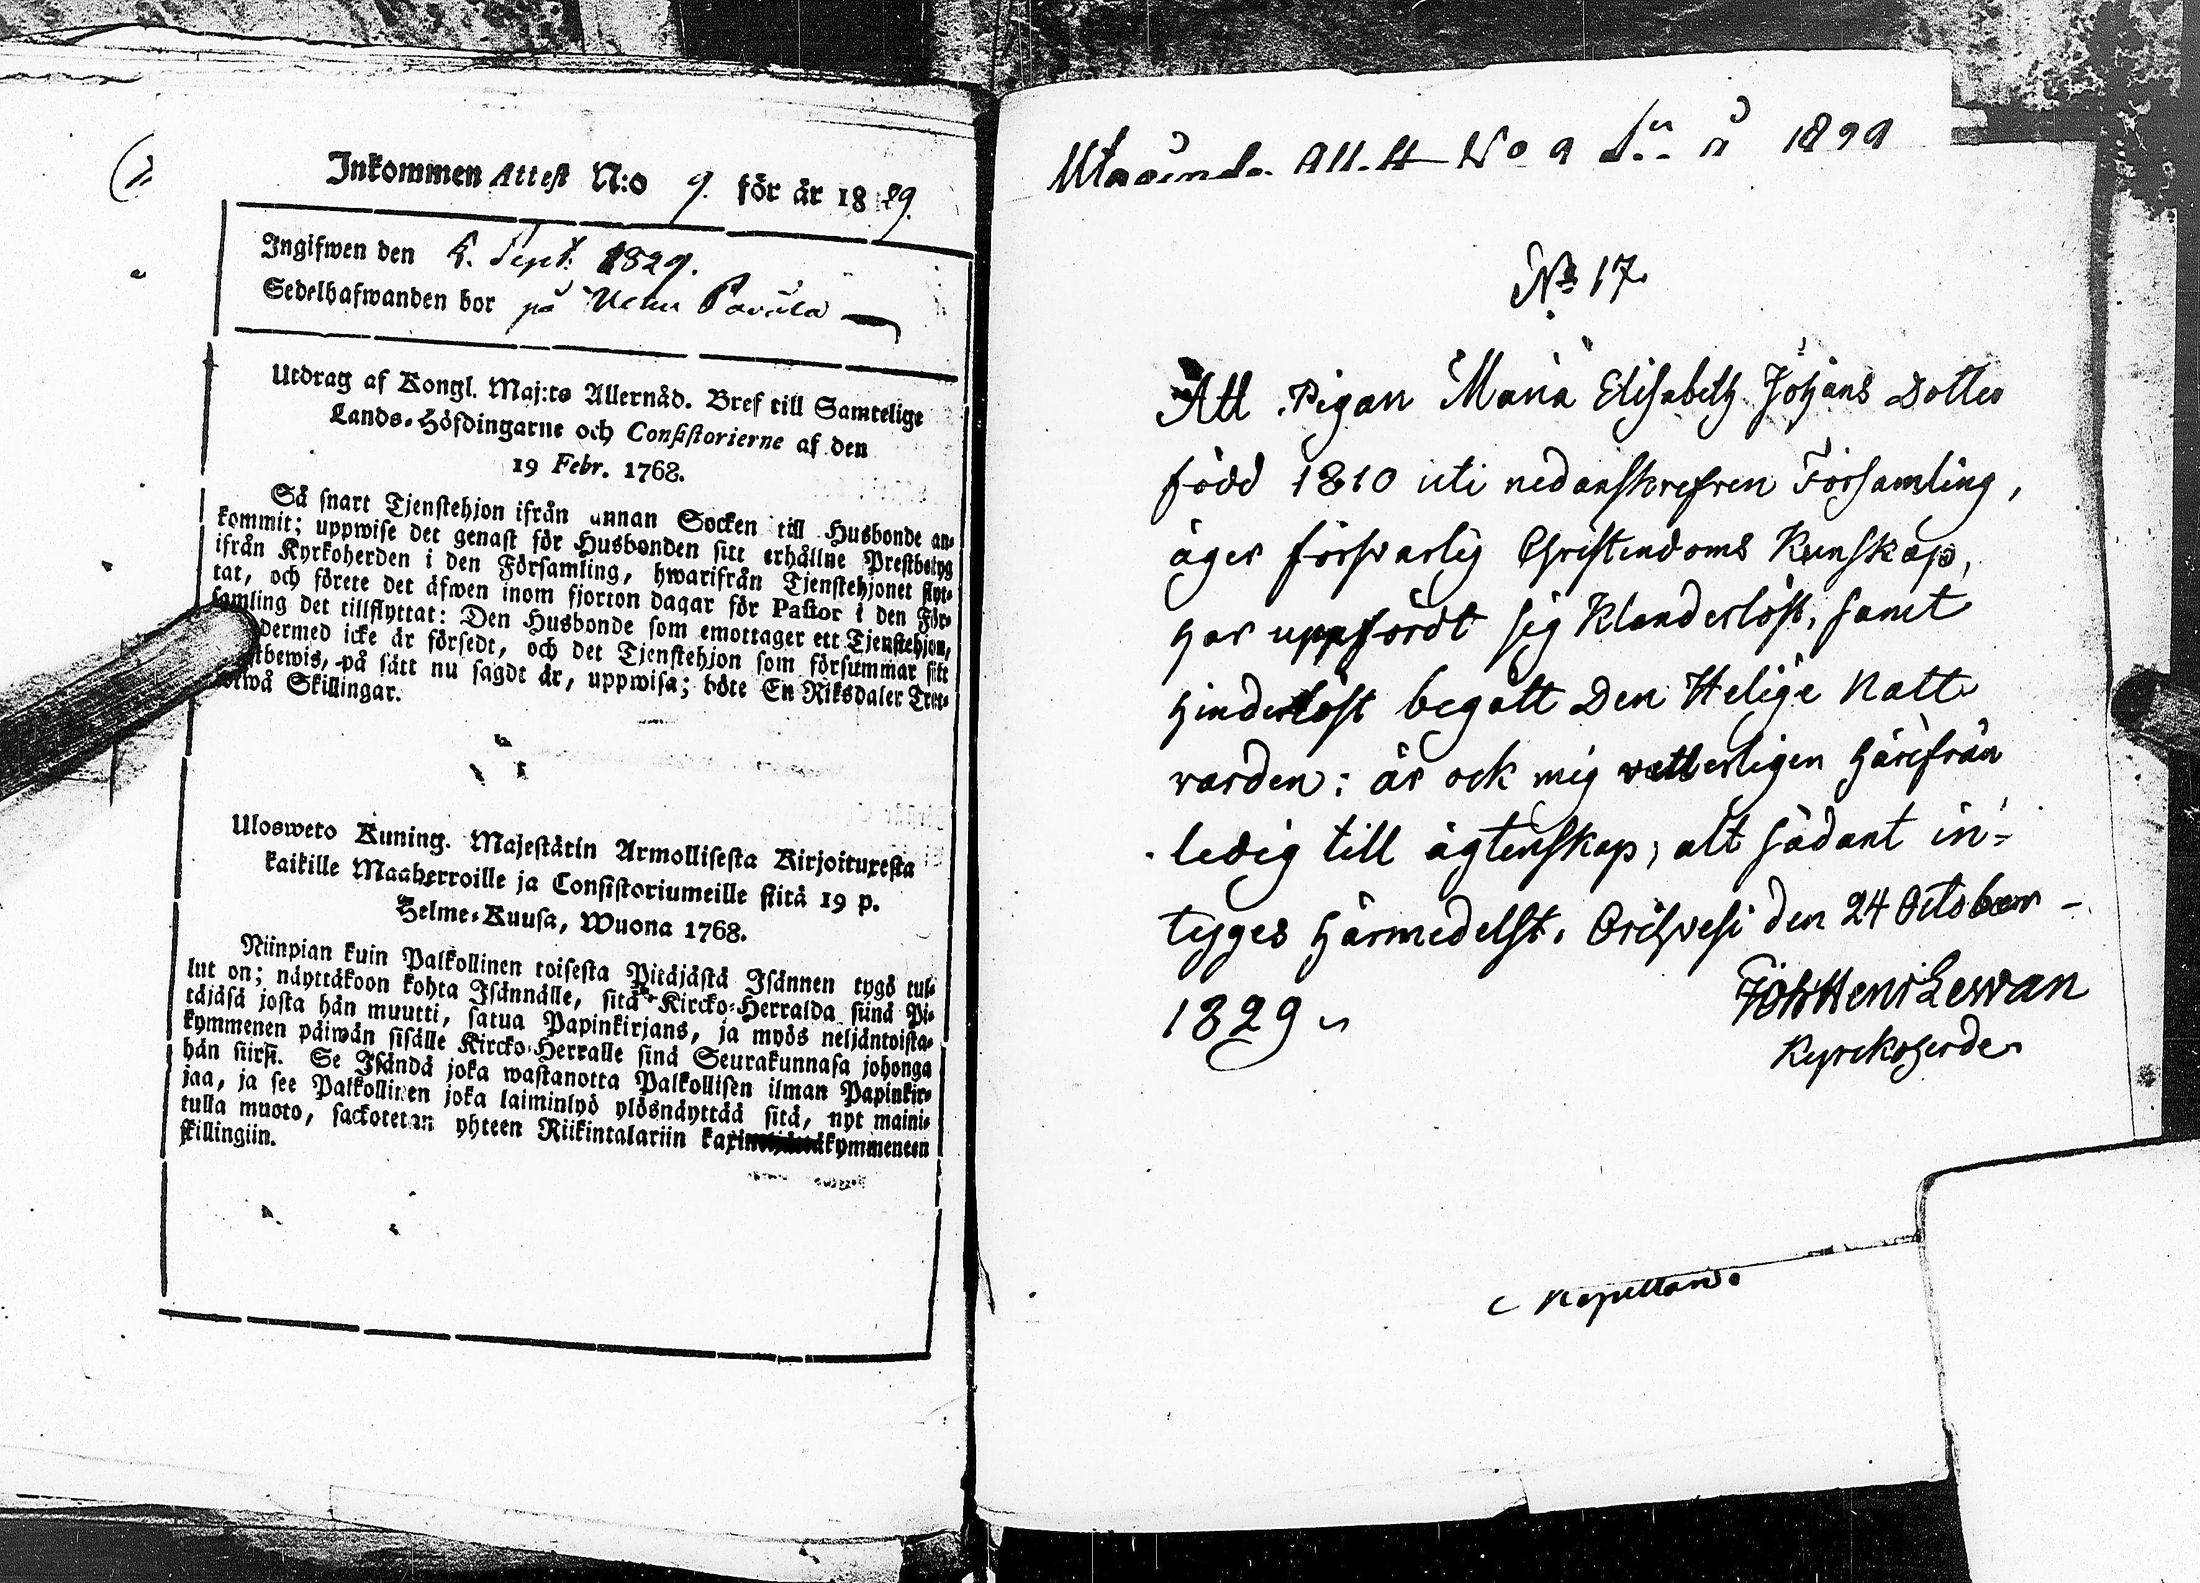 Inkommen Attest N:o 9. för år 1829.
Ingifwen den Sept: 1829.
Sedelhafwanden bor på
Utdrag af Kongl. Maj:ts Allernåd. Bref till Samtelige
Lands-Höfdingarne och Consistorierne af den
19 Febr. 1768.
Så snart Tjenstehjon ifrån annan Socken till Husbonde an-
kommit; uppwise det genast för Husbonden sitt erhållne Prestbetyg
ifrån Kyrkoherden i den Församling, hwarifrån Tjenstehjonet flyt-
tat, och förete det äfwen inom fjorton dagar för Pastor i den För-
samling det tillflyttat: Den Husbonde som emottager ett Tjenstehjon,
dermed icke är försedt, och det Tjenstehjon som försummar sitt
bewis, på sätt nu sagdt är, uppwisa; böte En Riksdaler Tret-
twå Skillingar.
Ulosweto Kuning. Majestätin Armollisesta Kirjoituxesta
kaikille Maaherroille ja Consistoriumeille siitä 19 p.
Helme-Kuusa, Wuona 1768.
Niinpian kuin Palkollinen toisesta Pitäjästä Isännen tygö tul-
lut on; näyttäkoon kohta Isännälle, sitä Kircko-Herralda siinä Pi-
täjäsä josta hän muutti, satua Papinkirjans, ja myös neljäntoista-
kymmenen päiwän sisälle Kircko-Herralle sinä Seurakunnasa johonga
hän siirsi. Se Isändä joka wastanotta Palkollisen ilman Papinkir-
jaa, ja see Palkollinen joka laiminlyö ylösnäyttää sitä, nyt maini-
tulla muoto, sackotetan yhteen Riikintalariin kymmeneen
skillingiin.
No 1899
No 17
Att Pigan Maria Elisabeth Johans Dotter
född 1810 uti nedanskrefven Församling,
äger försvarlig Christendoms Kunskap,
har uppfördt sig Klanderlöst, samt
hinderlöst begått Den Helige Natt
varden; är ock mig vetterligen härifrån
ledig till ägtenskap; alt sådant in-
tyges härmedelst. Orihvesi den 24 October
1829
Joh Henr Lewan
Kyrckoherde